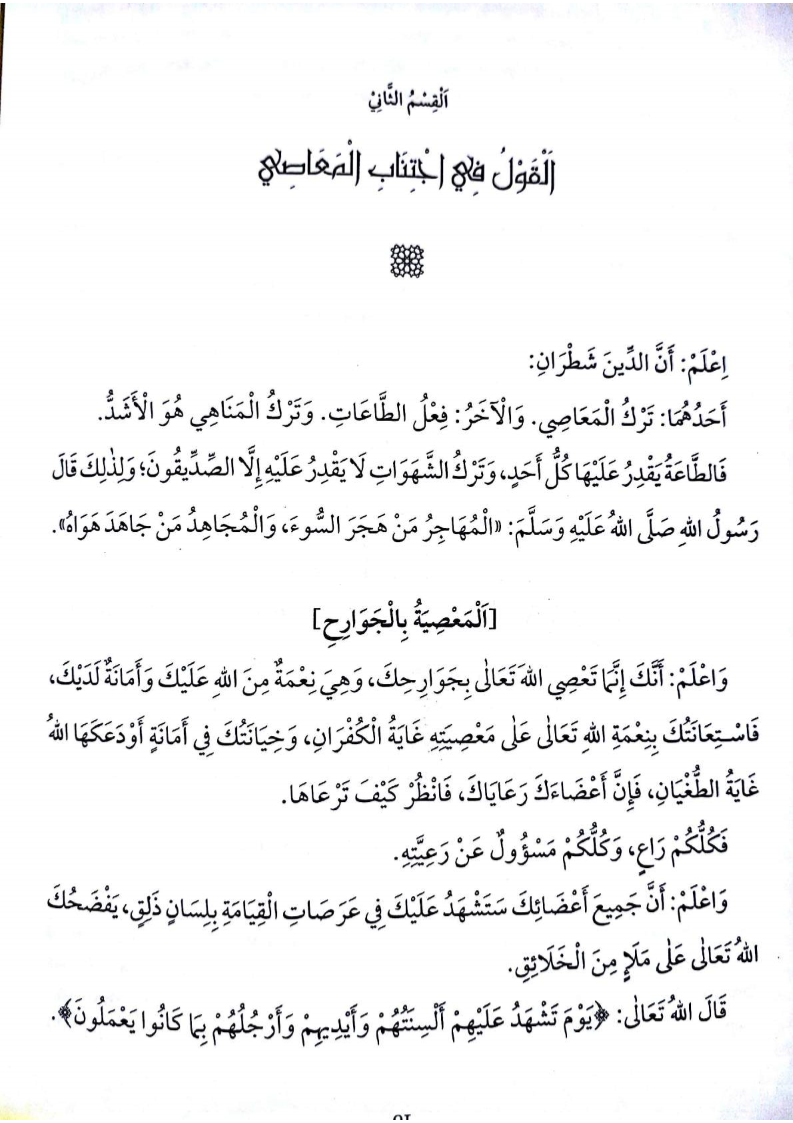 اَلْقِسْمُ الثَّانِيْ
اَلْقَوْلُ فِي اجْتِنَابِ الْمَعَاصِي
اِعْلَمْ: أَنَّ الدِّينَ شَطْرَانِ:
أَحَدُهُمَا: تَرْكُ الْمَعَاصِي. وَالْآخَرُ: فِعْلُ الطَّاعَاتِ. وَتَرْكُ الْمَنَاهِي هُوَ الْأَشَدُّ.
فَالطَّاعَةُ يَقْدِرُ عَلَيْهَا كُلُّ أَحَدٍ، وَتَرْكُ الشَّهَوَاتِ لَا يَقْدِرُ عَلَيْهِ إِلَّا الصِّدِّيقُونَ؛ وَلِذٰلِكَ قَالَ
رَسُولُ اللهِ صَلَّى اللهُ عَلَيْهِ وَسَلَّمَ: «الْمُهَاجِرُ مَنْ هَجَرَ السُّوءَ، وَالْمُجَاهِدُ مَنْ جَاهَدَ هَوَاهُ».
[اَلْمَعْصِيَةُ بِالْجَوَارِحِ]
وَاعْلَمْ: أَنَّكَ إِنَّمَا تَعْصِي اللهَ تَعَالٰى بِجَوَارِحِكَ، وَهِيَ نِعْمَةٌ مِنَ اللهِ عَلَيْكَ وَأَمَانَةٌ لَدَيْكَ،
فَاسْتِعَانَتُكَ بِنِعْمَةِ اللهِ تَعَالٰى عَلٰى مَعْصِيَتِهِ غَايَةُ الْكُفْرَانِ، وَخِيَانَتُكَ فِي أَمَانَةٍ أَوْدَعَكَهَا اللهُ
غَايَةُ الطُّغْيَانِ، فَإِنَّ أَعْضَاءَكَ رَعَايَاكَ، فَانْظُرْ كَيْفَ تَرْعَاهَا.
فَكُلُّكُمْ رَاعٍ، وَكُلُّكُمْ مَسْؤُولٌ عَنْ رَعِيَّتِهِ.
وَاعْلَمْ: أَنَّ جَمِيعَ أَعْضَائِكَ سَتَشْهَدُ عَلَيْكَ فِي عَرَصَاتِ الْقِيَامَةِ بِلِسَانٍ ذَلِقٍ، يَفْضَحُكَ
اللهُ تَعَالٰى عَلٰى مَلَإٍ مِنَ الْخَلَائِقِ.
قَالَ اللهُ تَعَالٰى: ﴿يَوْمَ تَشْهَدُ عَلَيْهِمْ أَلْسِنَتُهُمْ وَأَيْدِيهِمْ وَأَرْجُلُهُمْ بِمَا كَانُوا يَعْمَلُونَ﴾.